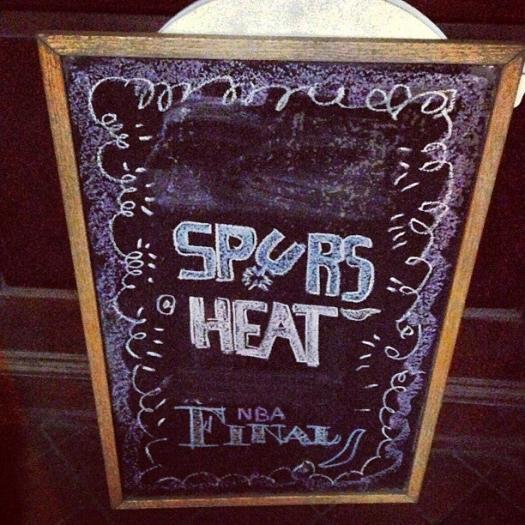 SPURS
HEAT
NBA
FINAL